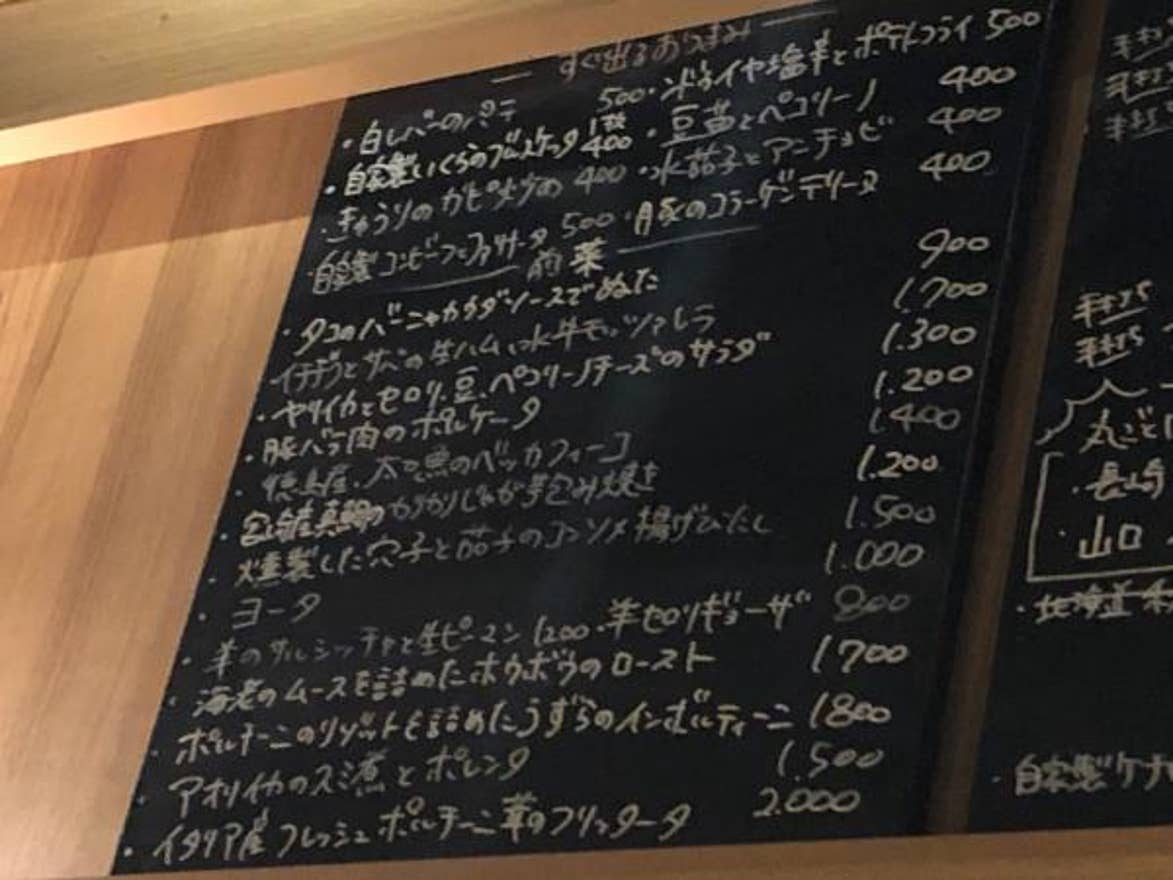 すぐ出るおつまみ
・白レバーのパテ 500 ・ドライヤ塩辛とポテトフライ 500
・自家製いくらのブルスケッタ 1枚 400 ・豆苗とペコリーノ 400
・きゅうりのガピ炒め 400 ・水茄子とアンチョビ 400
・自家製コンビーフと 500 ・豚のコラーゲンテリーヌ 400
前菜
・タコのバーニャカウダソースでぬた 900
イチヂクとサバの生ハム、水牛モッツァレラ 1.700
・ヤリイカとセロリ、豆、ペコリーノチーズのサラダ 1.300
・豚バラ肉のポルケータ 1.200
・徳島産、太刀魚のベッカフィーコ 1400
宮崎産真鯛のカリカリじゃが芋包み焼き 1.200
・燻製した穴子と茄子のコンソメ揚げびたし 1.500
・ヨータ 1.000
・羊のサルシッチャと生ピーマン 1200 ・羊セロリギョーザ 800
・海老のムースを詰めたホウボウのロースト 1700
・ポルチーニのリゾットを詰めたうずらのインボルティーニ 1800
・アオリイカのスミ煮とポレンタ 1.500
・イタリア産フレッシュポルチーニ茸のフリッタータ 2.000
手打
手打
手打
手打ち
手打ち
丸ごと
・長崎
・山口
・北海道
・自家製ケ